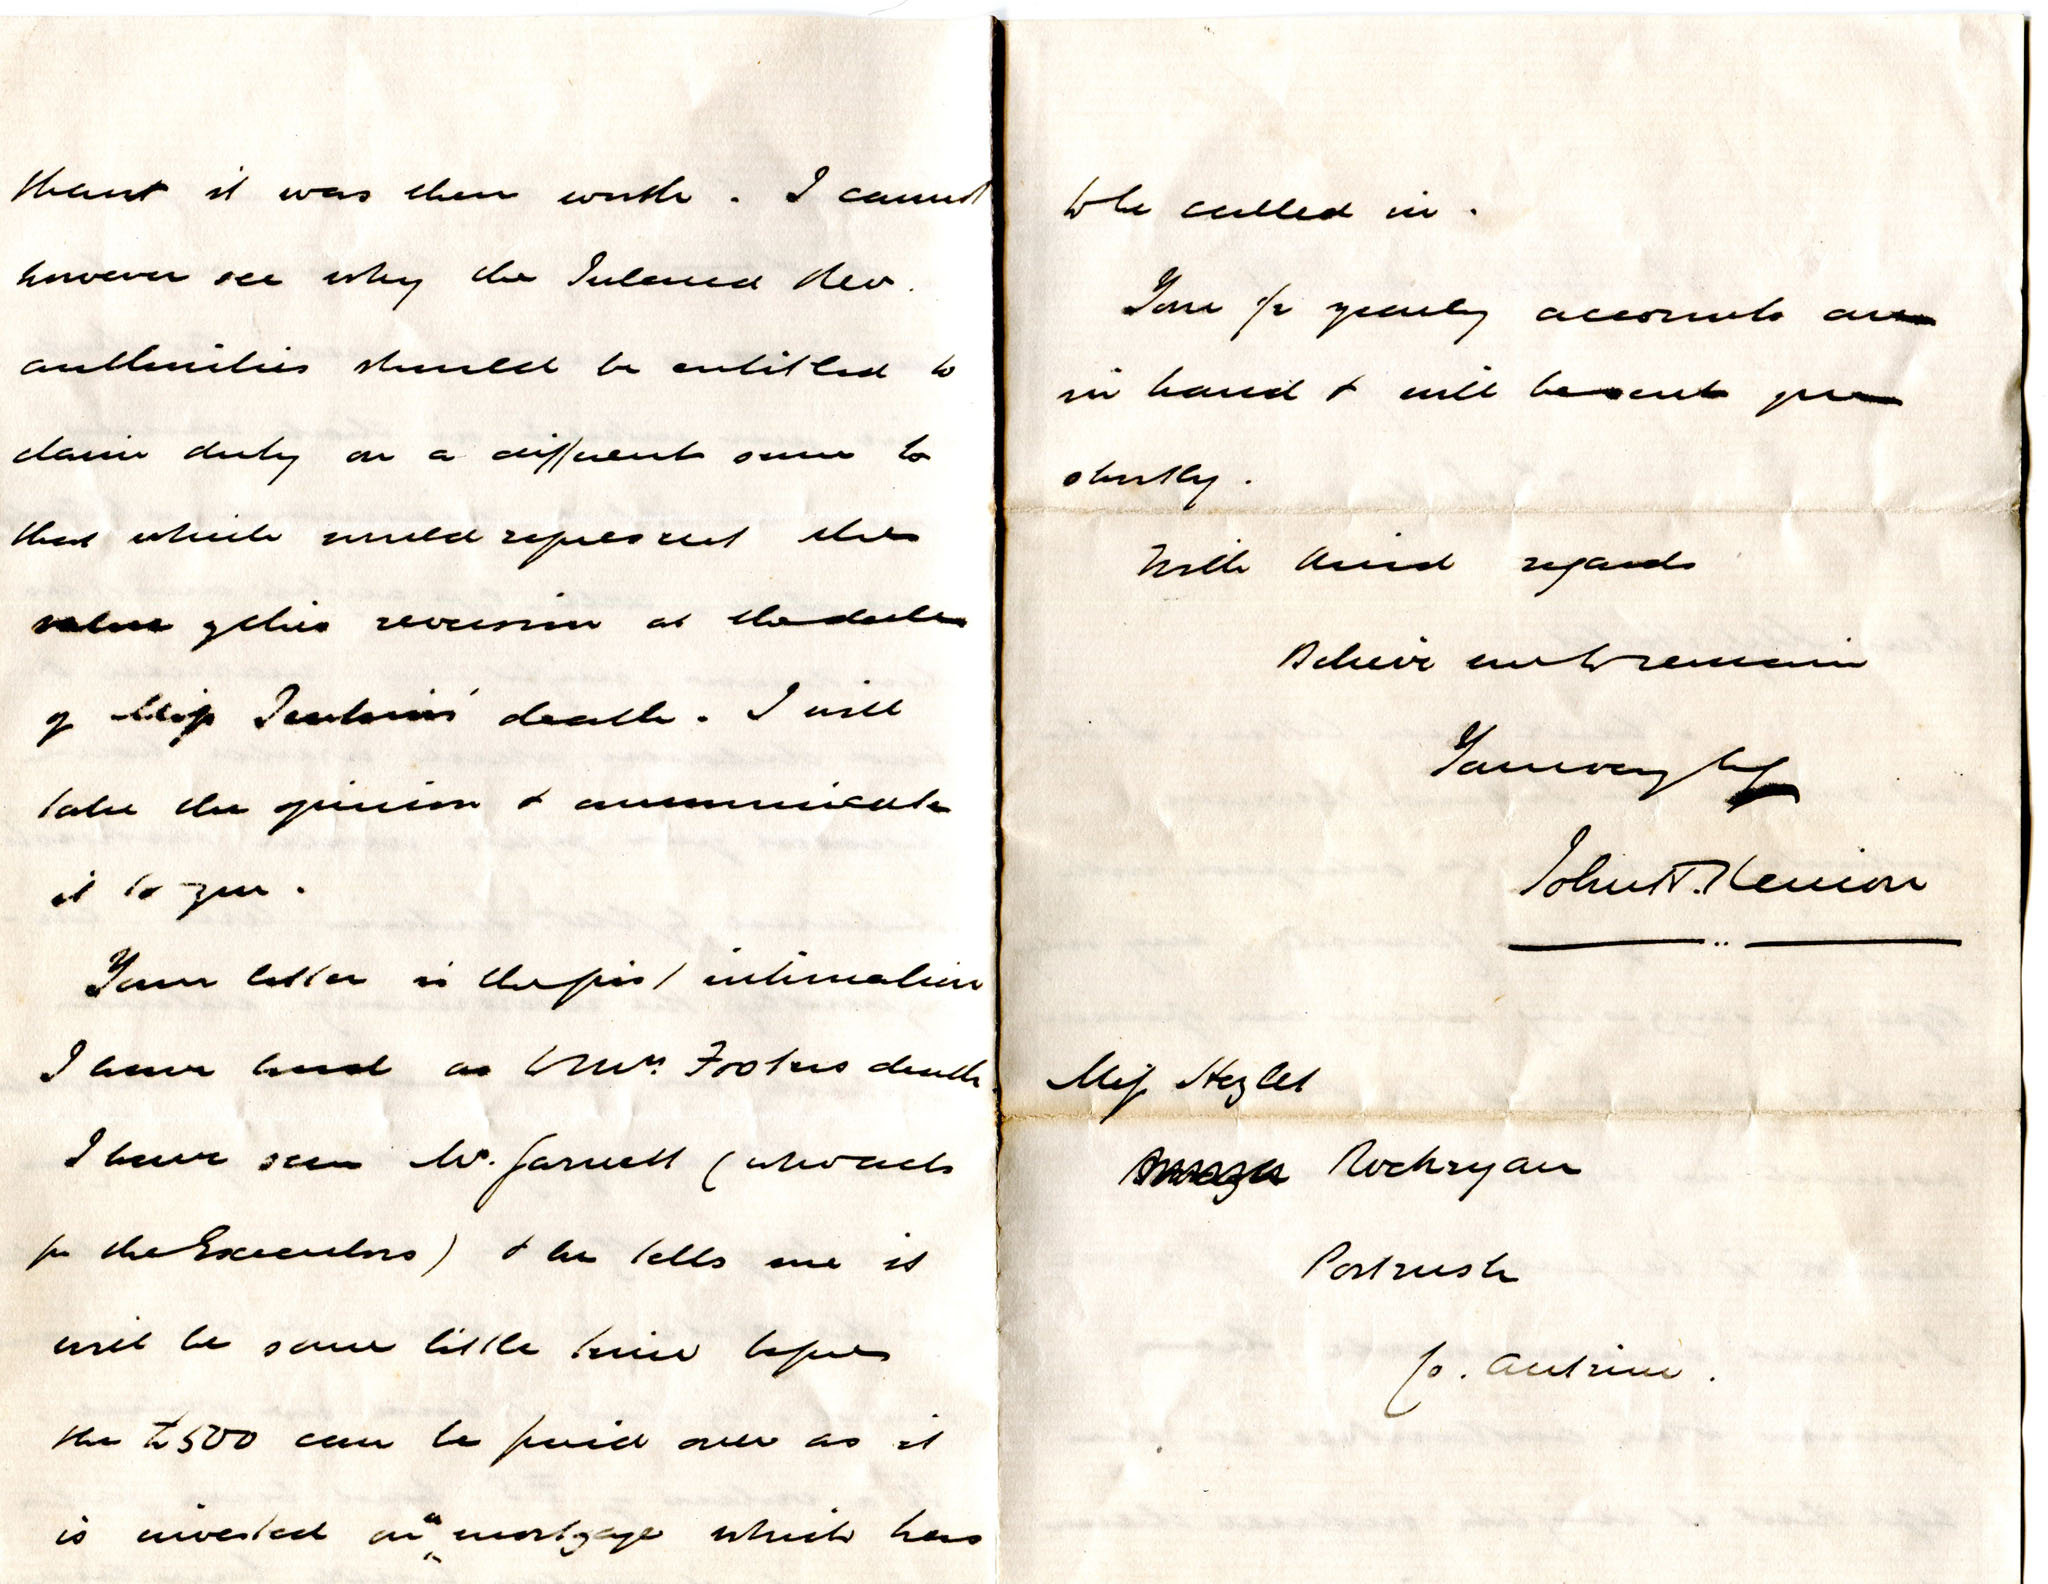 than it was then worth. I cannot
however see why the Inland Rev.
authorities should be entitled to
claim duty on a different sum to
that which would represent the
value of this reversion at the date
of Miss Jenkins' death. I will
take the opinion & communicate
it to you.
Your letter is the first intimation
I have had as to Mrs. Fosters death.
I have seen Mr. Garnett (who acts
for the Executors) & he tells me it
will be some little time before
the £500 can be paid over as it
is invested on a mortgage which has
to be called in.
Your ½ yearly accounts are
in hand & will be sent you
shortly.
With kind regards
Believe me to remain
Yours very truly
John H. Kenion
Miss Hezlet
Rockryan
Portrush
Co. Antrim.